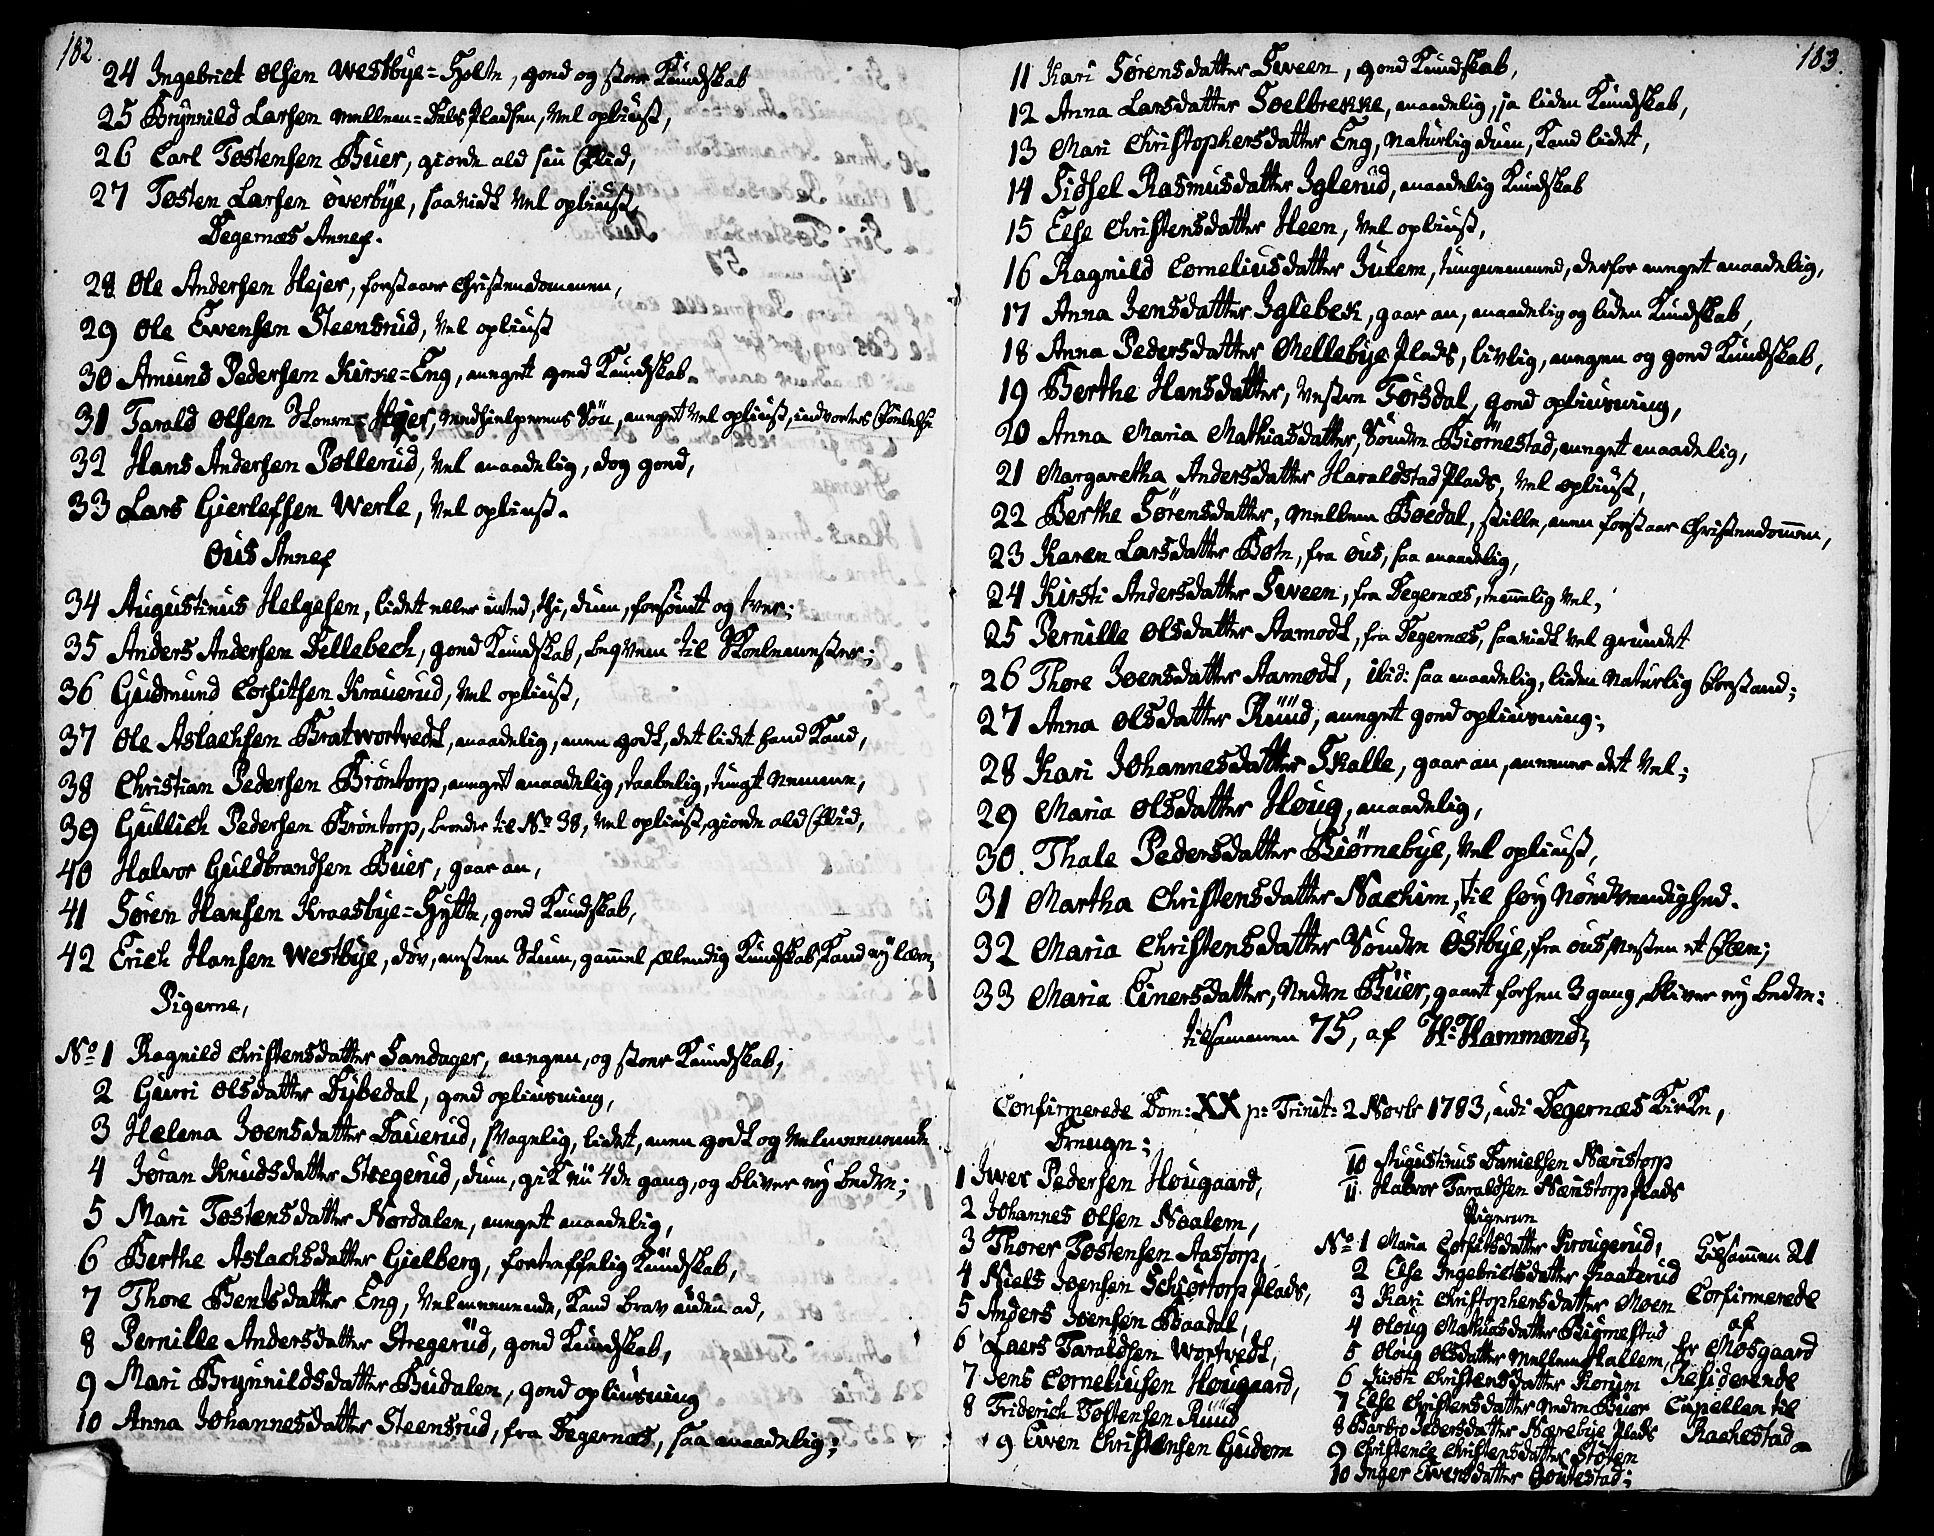 182.
24 Ingebriet Olsen Westbye=Holtn, good og stor Kundskab
25 Brynnild Larsen Mellem=Dels Pladsen, vel opliust,
26 Carl Tostensen Buer, giorde ald sin Flid,
27 Tosten Larsen Överbye, saavidt vel opliust,
Degernæs Annex.
28 Ole Andersen Hejer, forstaaer Christendommen,
29 Ole Ewensen Steensrud, vel opliust
30 Amund Pedersen Kirke=Eng, meget good Kundskab.
31 Tarald Olsen Hejer, Medhielperens Søn, meget vel opliust, indvortes Følelse
32 Hans Andersen Pøllerud, vel maadelig, dog good,
33 Lars Gierlefsen Werle, vel opliust.
Øus Annex
34 Augustinus Helgesen, lidet eller inted, thi, dum, forsømt og tver;
35 Anders Andersen Dellebech, good Kundskab, beqvem til Skoelemester;
36 Gudmund Corfitsen Krauerud, vel opliust,
37 Ole Aslachsen Bratwortvedt, maadelig, men godt, det lidet hand Kand,
38 Christian Pedersen Brøntorp, meget maadelig, taabelig, tungt Nemme,
39 Gullich Pedersen Brøntorp, broder til No 38, vel opliust, giorde ald Flid,
40 Halvor Guldbrandsen Buer, gaar an,
41 Søren Hansen Kraesbye=Hytte, good Kundskab,
42 Erich Hansen Westbye, døv, næsten Stum, gammel, ælendig Kundskab, Kand ej lære,
Pigerne,
No 1 Ragnild Christensdatter Sandager, megen, og stoer Kundskab,
2 Gurri Olsdatter Dybedal, good opliusning,
3 Helena Joensdatter Dauerud, svagelig, lidet, men godt og velmeenende
4 Jøran Knudsdatter Stregerud, dum, gik nu 4de gang, og bliver ej bedre;
5 Mari Tostensdatter Nordalen, meget maadelig,
6 Berthe Aslachsdatter Gielberg, fortreffelig Kundskab,
7 Thore Bentsdatter Eng, velmeenende, Kand brav uden ad,
8 Pernille Andersdatter Stregerud, good Kundskab,
9 Mari Brynnildsdatter Budalen, good opliusning
10 Anna Johannesdatter Steensrud, fra Degernæs, saa maadelig;
183.
11 Kari Sørensdatter Sween, good Kundskab,
12 Anna Larsdatter Soelbrekke, maadelig, ja liden Kundskab,
13 Mari Christophersdatter Eng, Naturlig dum, Kand lidet,
14 Sidsel Rasmusdatter Iglerud, maadelig Kundskab
15 Else Christensdatter Heen, vel opliust,
16 Ragnild Corneliusdatter Julem, tungnemmend, derfor meget maadelig,
17 Anna Jensdatter Iglebek, gaar an, maadelig og liden Kundskab,
18 Anna Pedersdatter Mellebye Plads, livlig, megen og good Kundskab,
19 Berthe Hansdatter, Vestre Torsdal, good opliusning,
20 Anna Maria Mathiasdatter, Søndre Biørnestad, meget maadelig,
21 Margaretha Andersdatter Haraldstad Plads, vel opliust,
22 Berthe Sørensdatter, Mellem Bøedal, stille, men forstaar Christendommen,
23 Karen Larsdatter Botn, fra Øus, saa maadelig,
24 Kirsti Andersdatter Sween, fra Degernæs, temmelig vel,
25 Pernille Olsdatter Aamodt, fra Degernæs, saavidt vel grundet
26 Thøre Joensdatter Aamodt, ibid: saa maadelig, liden Naturlig Forstand;
27 Anna Olsdatter Ruud, meget good opliusning;
28 Kari Johannesdatter Skalle, gaar an, meener det vel;
29 Maria Olsdatter Høug, maadelig,
30. Thale Pedersdatter Biørnebye, vel opliust,
31 Martha Christensdatter Nachim, til høy Nødvendighed.
32 Maria Christensdatter Søndre Østbye, fra Øus, Næsten et Fæ;
33 Maria Einersdatter, Nedre Buer, gaaet forhen 3 gang, bliver ej bedre;
tilsammen 75, af H: Hammond;
Confirmerede Dom: XX p: Trinit: 2 Novbr 1783, udi Degernæs Kirke,
Drenge;
1 Iwer Pedersen Hougaard,
2 Johannes Olsen Noalem,
3 Thorer Tostensen Aastorp,
4 Niels Joensen Schiørtorp Plads,
5 Anders Joensen Baadal,
6 Laers Taraldsen Wortvedt,
7 Jens Corneliusen Hougaard,
8 Friderich Tostensen Ruud
9 Ewen Christensen Gudem
10 Augustinus Danielsen Næristorp
11 Halvor Taraldsen Næristorp Plads
Pigerne
No 1 Maria Corfitsdatter Krougerud,
2 Else Ingebrietsdatter Kaaterud
3 Kari Christophersdatter Moen
4 Oloug Mathiasdatter Biørnestad
5 Oloug Olsdatter Mellem Hallem,
6 Kirsti Christensdatter Korum
7 Else Christensdatter Nedre Buer
8 Barbro Pedersdatter Nærebye Plads
9 Christence Christensdatter Støten
10 Inger Ewensdatter Goutestad;
Tilsammen 21
Confirmerede
af
Hr Mosgaard
Residerende
Capellan til
Rachestad.